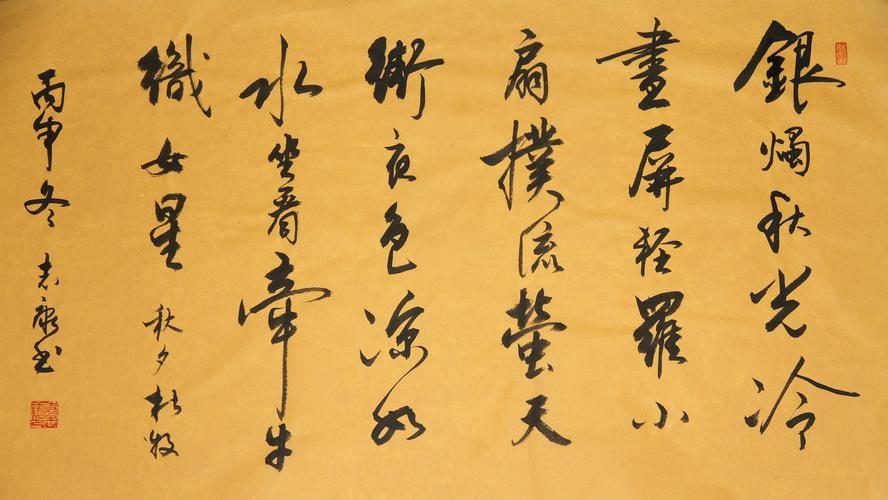 銀燭秋光冷
畫屏輕羅小
扇撲流螢天
街夜色涼如
水坐看牽牛
織女星 秋夕杜牧
丙申冬 志康书